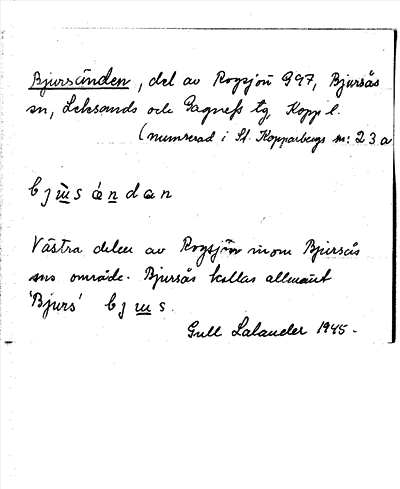 Bjursänden, del av Rogsjön G97, Bjursås
sn, Leksands och Gagnefs tg, Kopp l.
(numrerad i St. Kopparbergs sn: 23a
bjɯ̀s ándan
Västra delen av Rogsjön inom Bjursås
sns område. Bjursås kallas allmänt
'Bjurs' bjɯs.
Gull Lalander 1945.